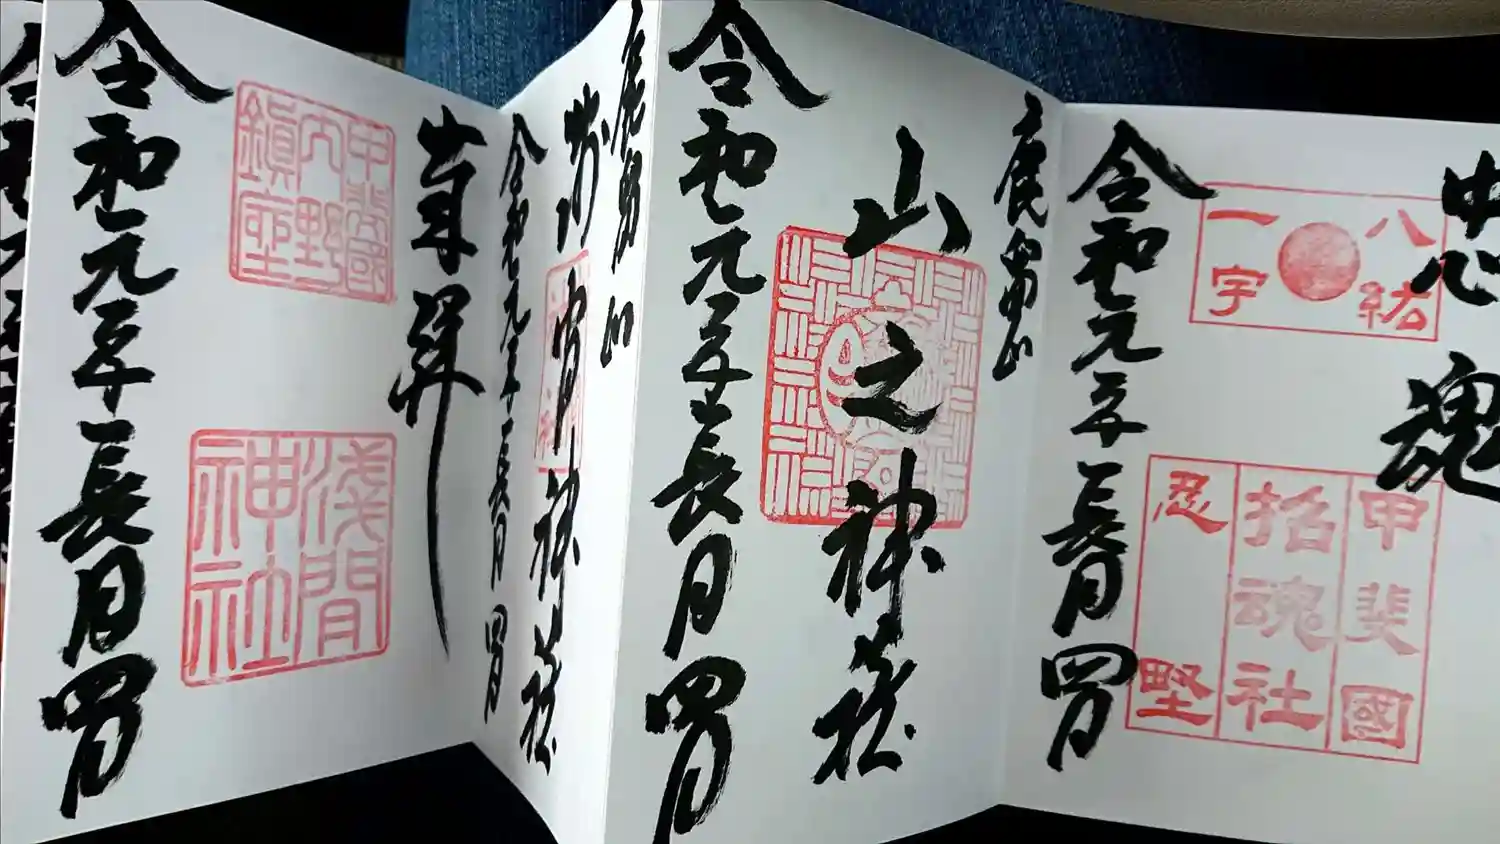 忠魂
八紘
一宇
甲斐國
招魂社
忍
令和元年長月四日
鹿留山
山之神社
令和元年長月四日
鹿留山
神社
令和元年長月四日
奉拝
甲斐國
内野
鎮座
淺間
神社
令和元年長月四日